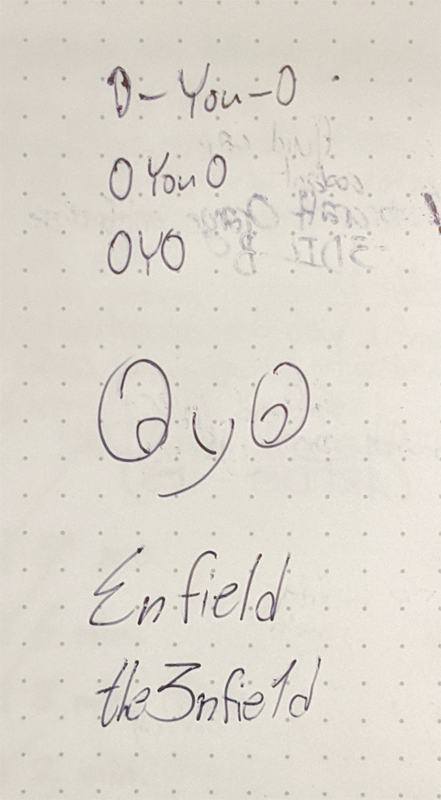 O-You-O
OYouO
OYO
OyO
Enfield
the3nfie1d